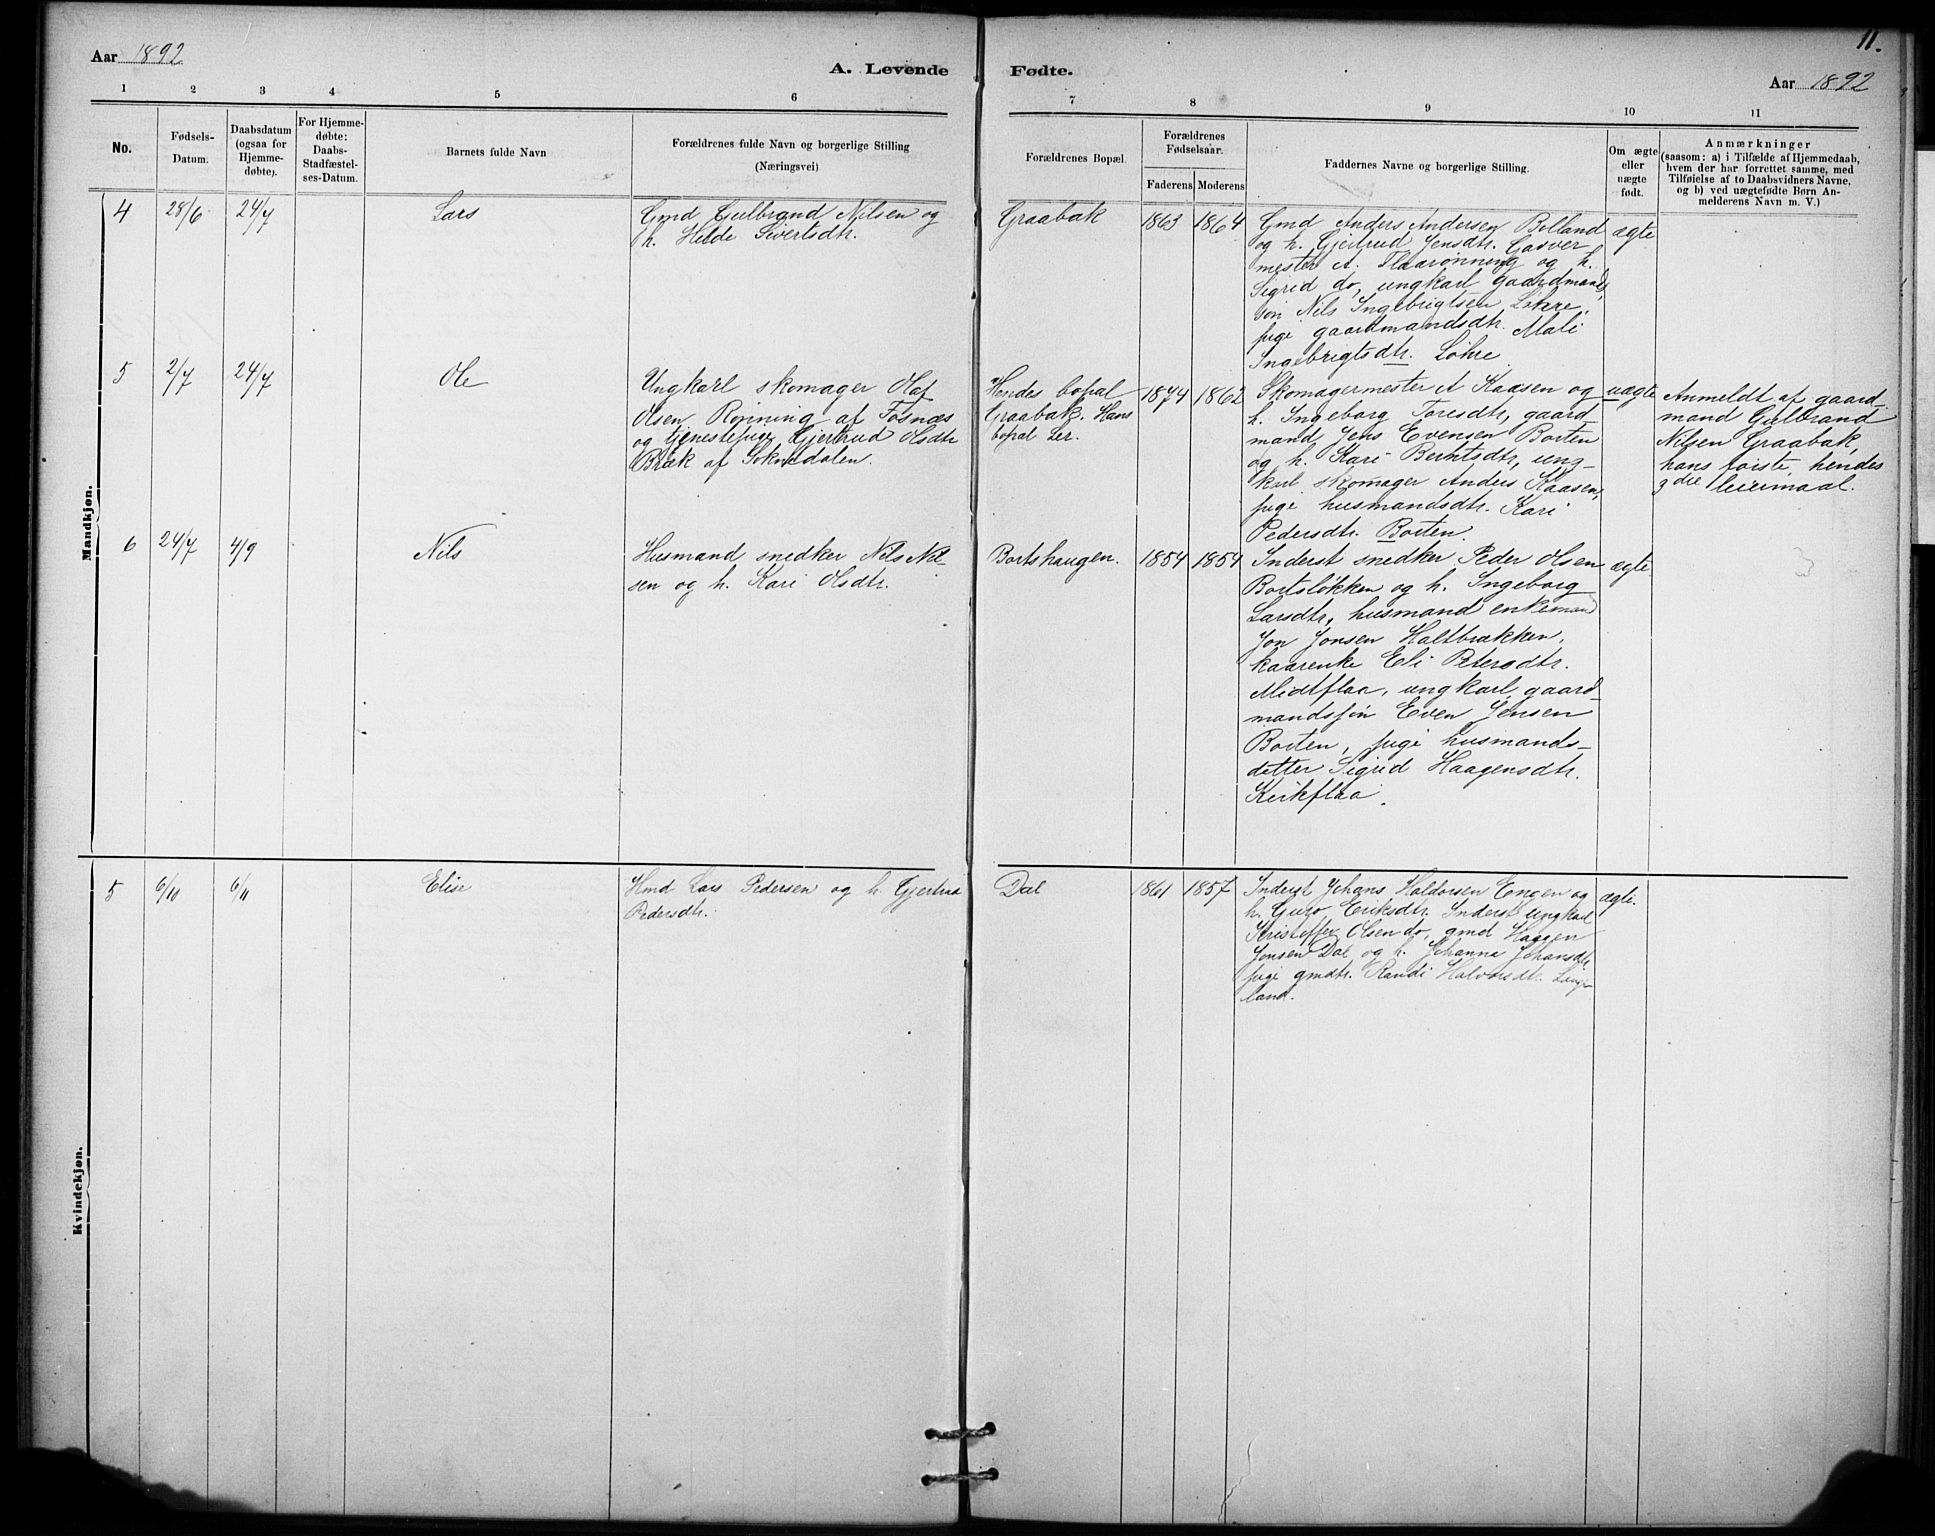 Aar 1892
A. Levende
Fødte.
Aar 1892
11.
1 2 3 4 5 6 7 8 9 10 11
No.
Fødsels-
Datum.
Daabsdatum
(ogsaa for
Hjemme-
døbte).
For Hjemme-
døbte:
Daabs-
Stadfæstel-
ses-Datum.
Barnets fulde Navn
Forældrenes fulde Navn og borgerlige Stilling
(Næringsvei)
Forældrenes Bopæl.
Forældrenes
Fødselsaar.
Faderens Moderens
Faddernes Navne og borgerlige Stilling.
Om ægte
eller
uægte
født.
Anmærkninger
(saasom: a) i Tilfælde af Hjemmedaab,
hvem der har forrettet samme, med
Tilføielse af to Daabsvidners Navne,
og b) ved uægtefødte Børn An-
melderens Navn m. V.)
Mandkjøn.
4 28/6 24/7 Lars
Gmd Gulbrand Nilsen og
h. Hilde Sivertsdtr.
Graabak 1863 1864
Gmd Anders Andersen Bolland
og h. Gjertrud Jensdtr. Garver
mester A. Flaarønning og h.
Sigrid do, ungkarl gaardmands
søn Nils Ingebrigtsen Løhre,
pige gaardmandsdtr. Mali
Ingebrigtsdtr. Løhre
ægte
5 2/7 24/7 Ole
Ungkarl skomager Olaf
Olsen Rojning af Fosnæs
og tjenestepige Gjertrud Olsdtr
Bræk af Soknedalen.
Hendes bopal
Graabak. Hans
bopal Ler.
1874 1862
Skomagermester A Kaasen og
h. Ingeborg Toresdtr, gaard
mand Jens Evensen Borten
og h. Kari Berntsdtr, ung-
karl skomager Anders Kaasen,
pige husmandsdtr. Kari
Pedersdtr. Borten.
uægte
Anmeldt af gaard-
mand Gulbrand
Nilsen Graabak,
hans første, hendes
3die leiermaal.
6 24/7 4/9 Nils
Husmand snedker Nils Nil-
sen og h. Kari Olsdtr.
Bortshaugen. 1854 1854
Inderst snedker Peder Olsen
Bortsløkken og h. Ingeborg
Larsdtr, husmand enkemand
Jon Jonsen Haltbrækken,
kaarenke Eli Petersdtr.
Midtflaa, ungkarl, gaard-
mandssøn Even Jensen
Borten, pige husmands-
detter Sigrid Haagensdtr.
Kirkflaa.
ægte.
Kvindekjøn.
5 6/10 6/11 Elise
Hmd Lars Pedersen og h. Gjertrud
Pedersdtr.
Dal 1861 1857
Inderst Johans Haldorsen Engen og
h. Guro Eriksdtr. Inderst ungkarl
Kristoffer Olsen do, gmd Haagen
Jonsen Dal og h. Johanna Johansdtr
pige gmdtr. Randi Halvorsdtr.
land.
ægte.